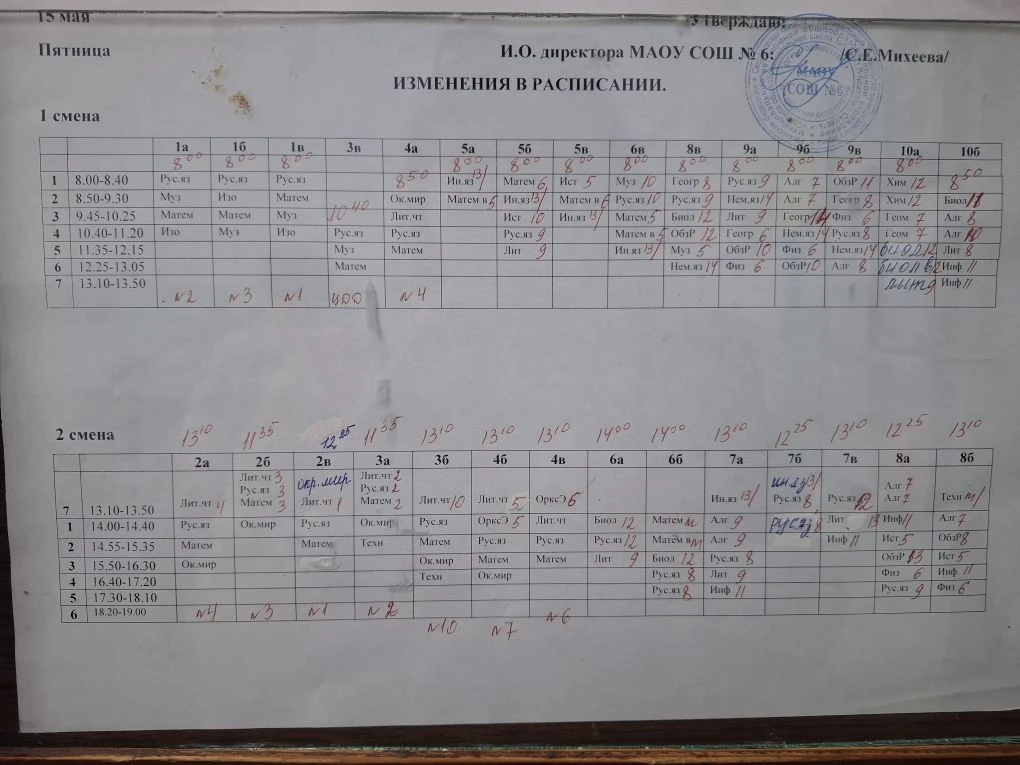 15 мая Утверждаю:
Пятница И.О. директора МАОУ СОШ № 6: /С.Е.Михеева/
МАОУ СОШ №6
ИЗМЕНЕНИЯ В РАСПИСАНИИ.
1 смена
1а 1б 1в 3в 4а 5а 5б 5в 6в 8в 9а 9б 9в 10а 10б
8⁰⁰ 8⁰⁰ 8⁰⁰ 8⁰⁰ 8⁰⁰ 8⁰⁰ 8⁰⁰ 8⁰⁰ 8⁰⁰ 8⁰⁰ 8⁰⁰ 8⁰⁰
1 8.00-8.40 Рус.яз Рус.яз Рус.яз 8⁵⁰ Ин.яз 13/ Матем 6 Ист 5 Муз 10 Геогр 8 Рус.яз 9 Алг 7 ОбзР 11 Хим 12 8⁵⁰
2 8.50-9.30 Муз Изо Матем Ок.мир Матем в 5 Ин.яз 13/ Матем в 6 Рус.яз 10 Рус.яз 9 Нем.яз 14 Алг 7 Геогр 8 Хим 12 Биол
3 9.45-10.25 Матем Матем Муз 10⁴⁰ Лит.чт Ист 10 Ин.яз 13/ Матем 5 Биол 12 Лит 9 Геогр Физ 6 Геом 7 Алг 8
4 10.40-11.20 Изо Муз Изо Рус.яз Рус.яз Рус.яз 9 Матем в 5 ОбзР 12 Геогр 6 Нем.яз 14 Рус.яз 8 Геом 7 Алг
5 11.35-12.15 Муз Матем Лит 9 Ин.яз 13/ Муз 5 ОбзР 10 Физ 6 Нем.яз 14 биол 12 Лит 8
6 12.25-13.05 Матем Нем.яз 14 Физ 6 ОбзР 10 Алг 8 биол в 12 Инф 11
7 13.10-13.50 №2 №3 №1 ЦОО №4 лит 9 Инф 11
2 смена 13¹⁰ 11³⁵ 12²⁵ 11³⁵ 13¹⁰ 13¹⁰ 13¹⁰ 14⁰⁰ 14⁰⁰ 13¹⁰ 12²⁵ 13¹⁰ 12²⁵ 13¹⁰
2а 2б 2в 3а 3б 4б 4в 6а 6б 7а 7б 7в 8а 8б
Лит.чт 3 окр.мир Лит.чт 2 ин.яз 13/ Алг 7
Рус.яз 3 Рус.яз 2
7 13.10-13.50 Лит.чт 4 Матем 3 Лит.чт 1 Матем 2 Лит.чт 10 Лит.чт 5 ОрксЭ 6 Ин.яз 13/ Рус.яз 8 Рус.яз Алг 7 Техн м/
1 14.00-14.40 Рус.яз Ок.мир Рус.яз Ок.мир Рус.яз ОрксЭ 5 Лит.чт Биол 12 Матем м Алг 9 рус.яз 8 Лит 13 Инф 11 Алг 7
2 14.55-15.35 Матем Матем Техн Матем Рус.яз Рус.яз Рус.яз 12 Матем в м Алг 9 Инф 11 Ист 5 ОбзР 8
3 15.50-16.30 Ок.мир Ок.мир Матем Матем Лит 9 Биол 12 Рус.яз 8 ОбзР 13 Ист 5
4 16.40-17.20 Техн Ок.мир Рус.яз 8 Лит 9 Физ 6 Инф 11
5 17.30-18.10 Рус.яз 8 Инф 11 Рус.яз 9 Физ 6
6 18.20-19.00 №4 №3 №1 №2 №6
№10 №7